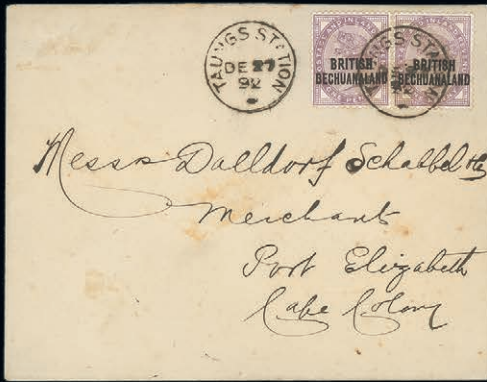 TAUNGS STATION
DE 27
92
BRITISH
BECHUANALAND
BRITISH
BECHUANALAND
Messrs Dalldorf Schabbel &Co
Merchants
Port Elizabeth
Cape Colony